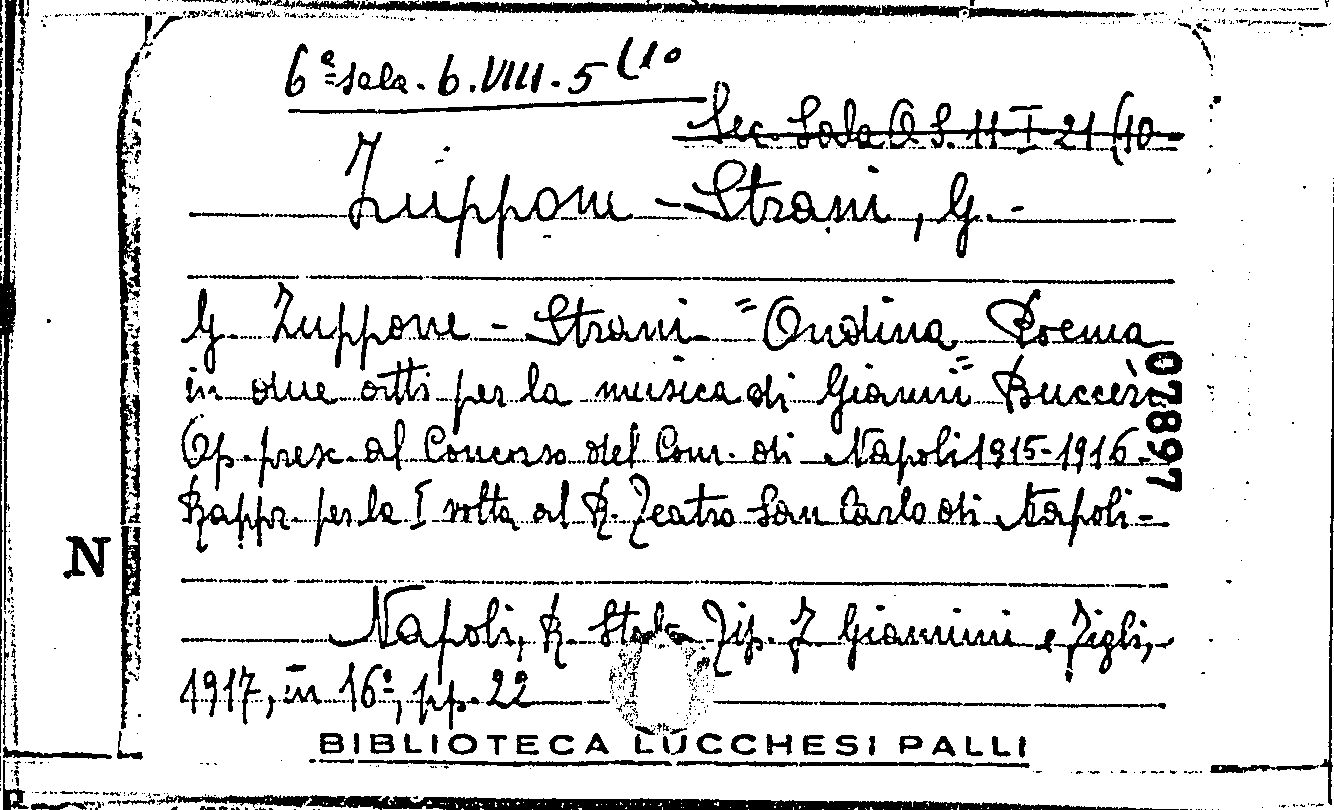 6ª sala. 6. VIII. 5 (10
Sec. Sala O S. 11 I 21 (10-
Zuppone - Strani, G. -
G. Zuppone - Strani - "Ondina Poema
in due atti per la musica di Gianni" Buccèri
Op. pres. al Concorso del Com. di Napoli 1915-1916-
Rappr. per la I volta al R. Teatro San Carlo di Napoli -
07897
N
Napoli, R. Stab. Tip. F. Giannini e Figli,
1917, in 16º, pp. 22
BIBLIOTECA LUCCHESI PALLI